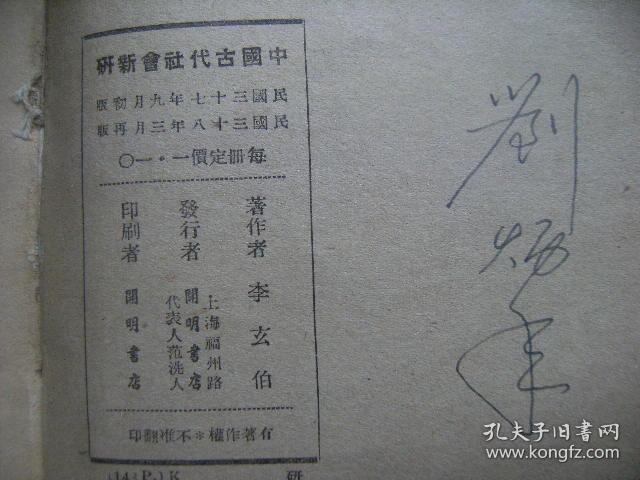 中國古代社會新研
民國三十七年九月初版
民國三十八年三月再版
每册定價一·一〇
著作者 李玄伯
發行者 開明書店
上海福州路
代表人范洗人
印刷者 開明書店
有著作權＊不准翻印
研
劉炳
孔夫子旧书网